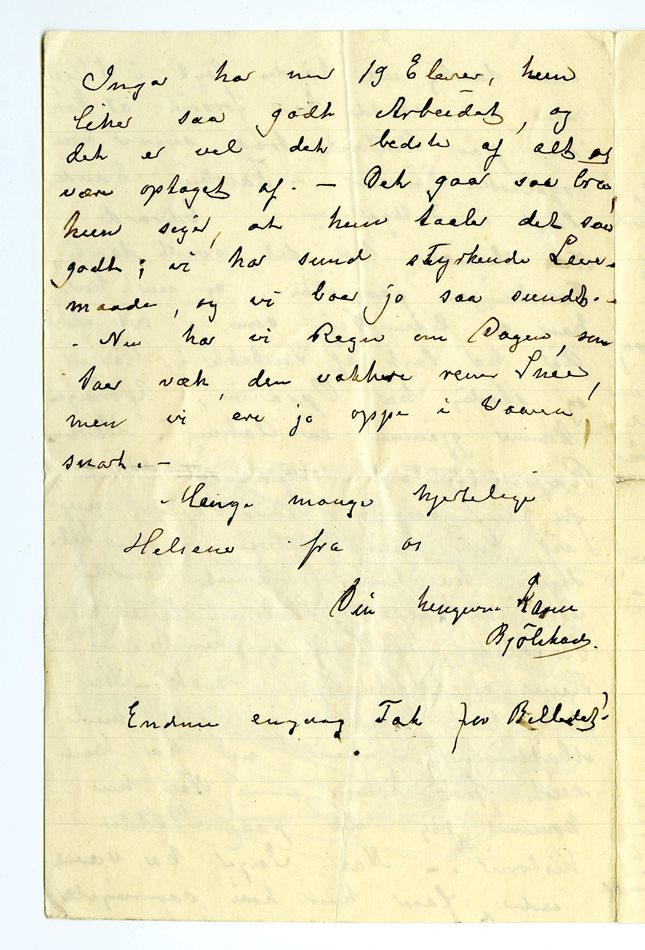 Inga har nu 19 Elever, hun
liker saa godt Arbeidet, og
det er vel det bedste af alt at
være optaget af. - Det gaar saa bra,
hun siger, at hun taaler det saa
godt; vi har sund styrkende Leve-
maade, og vi boer jo saa sundt. -
- Nu har vi Regn om Dagen, som
taer væk den vakkre rene Snee,
men vi ere jo oppe i Vaaren
snart. -
- Mange mange hjertelige
Helsener fra os
Din hengivne Karen
Bjölstad.
Endnu engang Tak for Billedet!